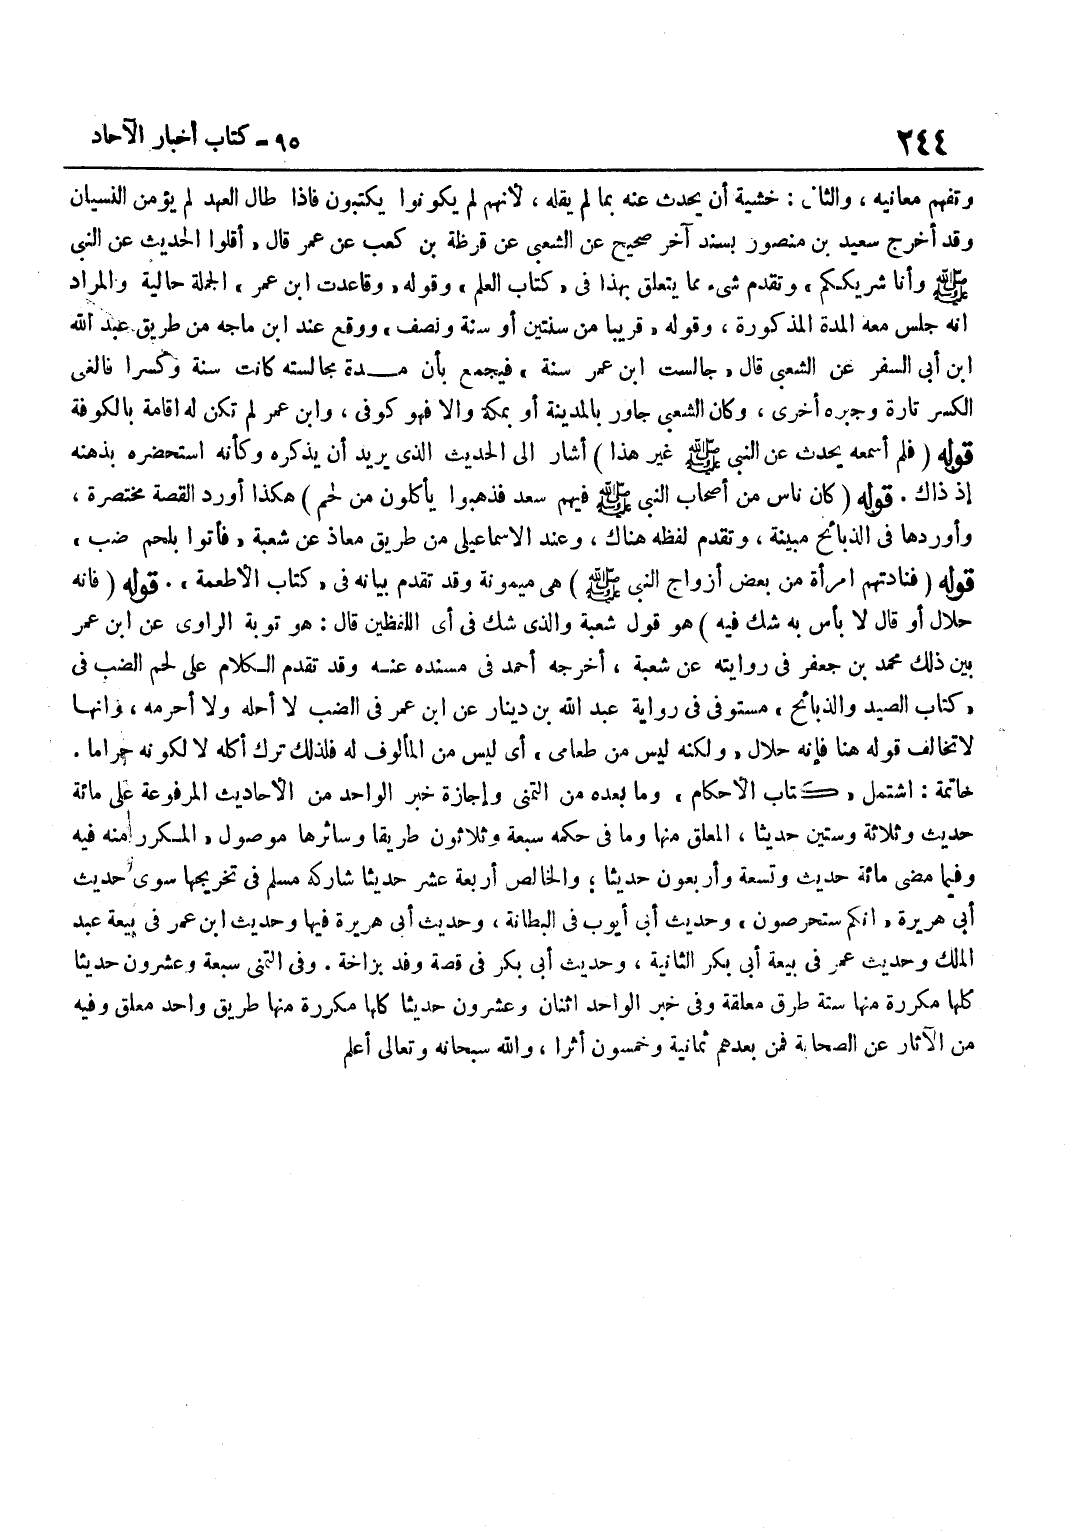 ٢٤٤
٩٥ - كتاب أخبار الآحاد
وتفهم معانيه ، والثانى : خشية أن يحدث عنه بما لم يقله ، لأنهم لم يكونوا يكتبون فاذا طال العهد لم يؤمن النسيان
وقد أخرج سعيد بن منصور بسند آخر صحيح عن الشعبى عن قرظة بن كعب عن عمر قال « أقلوا الحديث عن النبى
ﷺ وأنا شريككم » وتقدم شىء مما يتعلق بهذا فى « كتاب العلم » وقوله « وقاعدت ابن عمر » الجملة حالية والمراد
انه جلس معه المدة المذكورة ، وقوله « قريبا من سنتين أو سنة ونصف » ووقع عند ابن ماجه من طريق عبد الله
ابن أبى السفر عن الشعبى قال « جالست ابن عمر سنة » فيجمع بأن مـــدة مجالسته كانت سنة وكسرا فالغى
الكسر تارة وجبره أخرى ، وكان الشعبى جاور بالمدينة أو بمكة والا فهو كوفى ، وابن عمر لم تكن له اقامة بالكوفة
قوله ( فلم أسمعه يحدث عن النبى ﷺ غير هذا ) أشار الى الحديث الذى يريد أن يذكره وكأنه استحضره بذهنه
إذ ذاك . قوله ( كان ناس من أصحاب النبى ﷺ فيهم سعد فذهبوا يأكلون من لحم ) هكذا أورد القصة مختصرة ،
وأوردها فى الذبائح مبينة ، وتقدم لفظه هناك ، وعند الاسماعيلى من طريق معاذ عن شعبة « فأتوا بلحم ضب »
قوله ( فنادتهم امرأة من بعض أزواج النبى ﷺ ) هى ميمونة وقد تقدم بيانه فى « كتاب الأطعمة » . قوله ( فانه
حلال أو قال لا بأس به شك فيه ) هو قول شعبة والذى شك فى أى اللفظين قال : هو توبة الراوى عن ابن عمر
بين ذلك محمد بن جعفر فى روايته عن شعبة ، أخرجه أحمد فى مسنده عنـه وقد تقدم الـكلام على لحم الضب فى
« كتاب الصيد والذبائح » مستوفى فى رواية عبد الله بن دينار عن ابن عمر فى الضب لا أحله ولا أحرمه ، وانهـا
لا تخالف قوله هنا فإنه حلال « ولكنه ليس من طعامى » أى ليس من المألوف له فلذلك ترك أكله لا لكونه حراما .
خاتمة : اشتمل « كتاب الأحكام » وما بعده من التمنى وإجازة خبر الواحد من الأحاديث المرفوعة على مائة
حديث وثلاثة وستين حديثا ، المعلق منها وما فى حكمه سبعة وثلاثون طريقا وسائرها موصول « المـكرر منه فيه
وفيما مضى مائة حديث وتسعة وأربعون حديثا ؛ والخالص أربعة عشر حديثا شاركه مسلم فى تخريجها سوى حديث
أبى هريرة « انكم ستحرصون » وحديث أبى أيوب فى البطانة ، وحديث أبى هريرة فيها وحديث ابن عمر فى بيعة عبد
الملك وحديث عمر فى بيعة أبى بكر الثانية ، وحديث أبى بكر فى قصة وفد بزاخة . وفى التمنى سبعة وعشرون حديثا
كلها مكررة منها ستة طرق معلقة وفى خبر الواحد اثنان وعشرون حديثا كلها مكررة منها طريق واحد معلق وفيه
من الآثار عن الصحابة فمن بعدهم ثمانية وخمسون أثرا ، والله سبحانه وتعالى أعلم